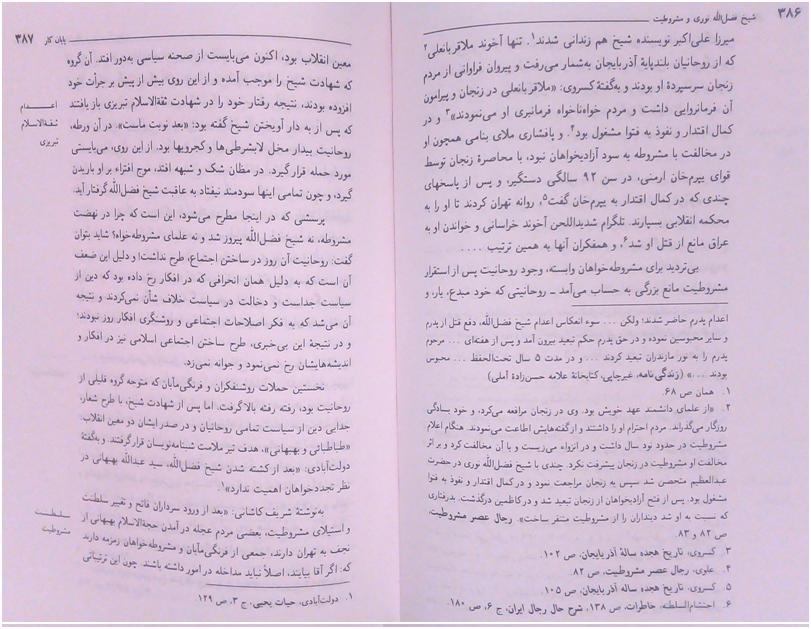 ۳۸۶
شیخ فضل‌الله نوری و مشروطیت
میرزا علی‌اکبر نویسنده شیخ هم زندانی شدند۱. تنها آخوند ملاقربانعلی۲
که از روحانیان بلندپایهٔ آذربایجان به‌شمار می‌رفت و پیروان فراوانی از مردم
زنجان سرسپردهٔ او بودند و به‌گفتهٔ کسروی: «ملاقربانعلی در زنجان و پیرامون
آن فرمانروایی داشت و مردم خواه‌ناخواه فرمانبری او می‌نمودند»۳ و در
کمال اقتدار و نفوذ به فتوا مشغول بود۴. و پافشاری ملای بنامی همچون او
در مخالفت با مشروطه به سود آزادیخواهان نبود، با محاصرهٔ زنجان توسط
قوای یپرم‌خان ارمنی، در سن ۹۲ سالگی دستگیر، و پس از پاسخهای
چندی که در کمال اقتدار به یپرم‌خان گفت۵، روانه تهران کردند تا او را به
محکمه انقلابی بسپارند. تلگرام شدیداللحن آخوند خراسانی و خواندن او به
عراق مانع از قتل او شد۶، و همفکران آنها به همین ترتیب ....
بی‌تردید برای مشروطه‌خواهان وابسته، وجود روحانیت پس از استقرار
مشروطیت مانع بزرگی به حساب می‌آمد ـ روحانیتی که خود مبدع، یار، و
اعدام پدرم حاضر شدند؛ ولکن ... سوء انعکاس اعدام شیخ فضل‌الله، دفع قتل از پدرم
و سایر محبوسین نموده و در حق پدرم حکم تبعید بیرون آمد و پس از هفته‌ای ... مرحوم
پدرم را به نور مازندران تبعید کردند ... و در مدت ۵ سال تحت‌الحفظ ... محبوس
بودند ...» (زندگی‌نامه، غیرچاپی، کتابخانهٔ علامه حسن‌زادهٔ آملی)
۱. همان ص ۶۸.
۲. «از علمای دانشمند عهد خویش بود. وی در زنجان مرافعه می‌کرد، و خود بسادگی
روزگار می‌گذراند. مردم احترام او را داشتند و از گفته‌هایش اطاعت می‌نمودند. هنگام اعلام
مشروطیت در حدود نود سال داشت و در انزواء می‌زیست و با آن مخالفت کرد و بر اثر
مخالفت او مشروطیت در زنجان پیشرفت نکرد. چندی با شیخ فضل‌الله نوری در حضرت
عبدالعظیم متحصن شد سپس به زنجان مراجعت نمود و در کمال اقتدار و نفوذ به فتوا
مشغول بود. پس از فتح آزادیخواهان از زنجان تبعید شد و در کاظمین درگذشت. بدرفتاری
که نسبت به او شد دینداران را از مشروطیت متنفر ساخت». رجال عصر مشروطیت،
ص ۸۲ و ۸۳.
۳. کسروی، تاریخ هجده سالهٔ آذربایجان، ص ۱۰۲.
۴. علوی، رجال عصر مشروطیت، ص ۸۲.
۵. کسروی، تاریخ هجده سالهٔ آذربایجان، ص ۱۰۵.
۶. احتشام‌السلطنه، خاطرات، ص ۱۳۸، شرح حال رجال ایران، ج ۶، ص ۱۸۰.
پایان کار ۳۸۷
معین انقلاب بود، اکنون می‌بایست از صحنه سیاسی به‌دور افتد. آن گروه
که شهادت شیخ را موجب آمده و از این روی بیش از پیش بر جرأت خود
افزوده بودند، نتیجه رفتار خود را در شهادت ثقةالاسلام تبریزی باز یافتند
که پس از به دار آویختن شیخ گفته بود: «بعد نوبت ماست». در آن ورطه،
روحانیت بیدار مخل لابشرطی‌ها و کجرویها بود. از این روی، می‌بایستی
مورد حمله قرار گیرد. در مظان شک و شبهه افتد، موج افتراء بر او باریدن
گیرد، و چون تمامی اینها سودمند نیفتاد به عاقبت شیخ فضل‌الله گرفتار آید.
اعدام
ثقةالاسلام
تبریزی
پرسشی که در اینجا مطرح می‌شود، این است که چرا در نهضت
مشروطه، نه شیخ فضل‌الله پیروز شد و نه علمای مشروطه‌خواه؟ شاید بتوان
گفت: روحانیت آن روز در ساختن اجتماع، طرح نداشت؛ و دلیل این ضعف
آن است که به دلیل همان انحرافی که در افکار رخ داده بود که دین از
سیاست جداست و دخالت در سیاست خلاف شأن نمی‌کردند و نتیجه
آن می‌شد که به فکر اصلاحات اجتماعی و روشنگری افکار روز نبودند؛
و در نتیجهٔ این بی‌خبری، طرح ساختن اجتماعی اسلامی نیز در افکار و
اندیشه‌هایشان رخ نمی‌نمود و جوانه نمی‌زد.
نخستین حملات روشنفکران و فرنگی‌مآبان که متوجه گروه قلیلی از
روحانیت بود، رفته رفته بالا گرفت. اما پس از شهادت شیخ، با طرح شعار،
جدایی دین از سیاست تمامی روحانیان و در صدر ایشان دو معین انقلاب:
«طباطبائی و بهبهانی»، هدف تیر ملامت شبنامه‌نویسان قرار گرفتند. و به‌گفتهٔ
دولت‌آبادی: «بعد از کشته شدن شیخ فضل‌الله، سید عبدالله بهبهانی در
نظر تجددخواهان اهمیت ندارد»۱.
به‌نوشتهٔ شریف کاشانی: «بعد از ورود سرداران فاتح و تغییر سلطنت
و استیلای مشروطیت، بعضی مردم عجله در آمدن حجةالاسلام بهبهانی از
نجف به تهران دارند، جمعی از فرنگی‌مآبان و مشروطه‌خواهان زمزمه دارند
که: اگر آقا بیایند، اصلاً نباید مداخله در امور داشته باشند. چون این ترتیباتی
سلطنت
مشروطیت
۱. دولت‌آبادی، حیات یحیی، ج ۳، ص ۱۲۹